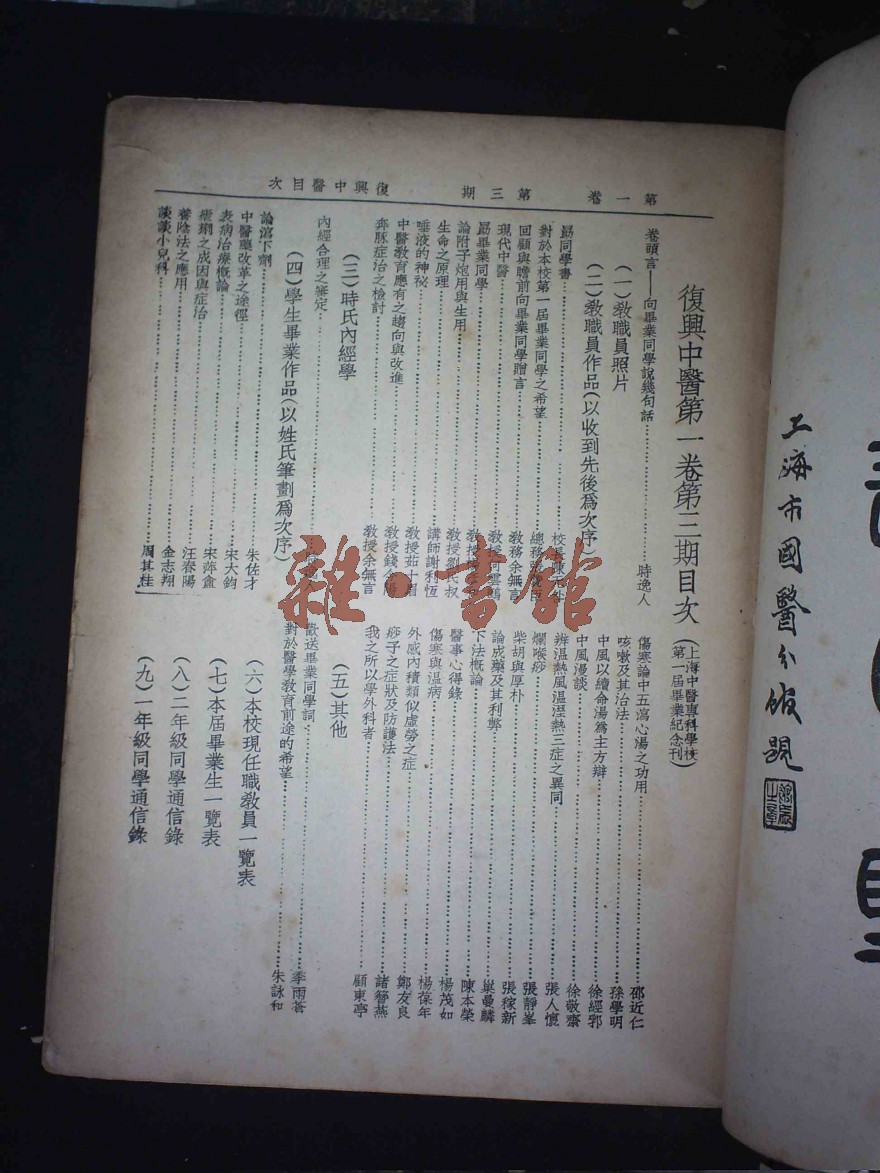 第一卷 第三期 復興中醫目次
復興中醫第一卷第三期目次
(上海中醫專科學校
第一屆畢業紀念刊)
卷頭言——向畢業同學說幾句話 時逸人
(一)教職員照片
(二)教職員作品(以收到先後爲次序)
勗同學書 校長
對於本校第一屆畢業同學之希望 總務
回顧與瞻前向畢業同學贈言 教務余無言
現代中醫 教授
勗畢業同學 教授
論附子炮用與生用 教授劉民叔
生命之原理 講師謝利恆
唾液的神秘 教授茹十眉
中醫教育應有之趨向與改進 教授錢
奔豚症治之檢討 教授余無言
(三)時氏內經學
內經合理之審定
(四)學生畢業作品(以姓氏筆劃爲次序)
論瀉下劑 朱佐才
中醫藥改革之途徑 宋大鈞
表病治療概論 宋萍盦
癆瘵之成因與症治 汪春陽
養陰法之應用 金志翔
談談小兒科 周其桂
傷寒論中五瀉心湯之功用 邵近仁
咳嗽及其治法 孫學明
中風以續命湯爲主方辯 徐經郛
中風漫談 徐敬齋
辨溫熱風溫溼熱三症之異同 張人懷
爛喉痧 張靜峯
柴胡與厚朴 張稼新
論成藥及其利弊 巢曼麟
下法概論 陳本榮
醫事心得錄 楊茂如
傷寒與溫病 楊葆年
外感內積類似虛勞之症 鄭友良
痧子之症狀及防護法 諸簪燕
我之所以學外科者 顧東亭
(五)其他
歡送畢業同學詞 季雨蒼
對於醫學教育前途的希望 朱詠和
(六)本校現任職教員一覽表
(七)本屆畢業生一覽表
(八)二年級同學通信錄
(九)一年級同學通信錄
上海市國醫分館題
雜·書館